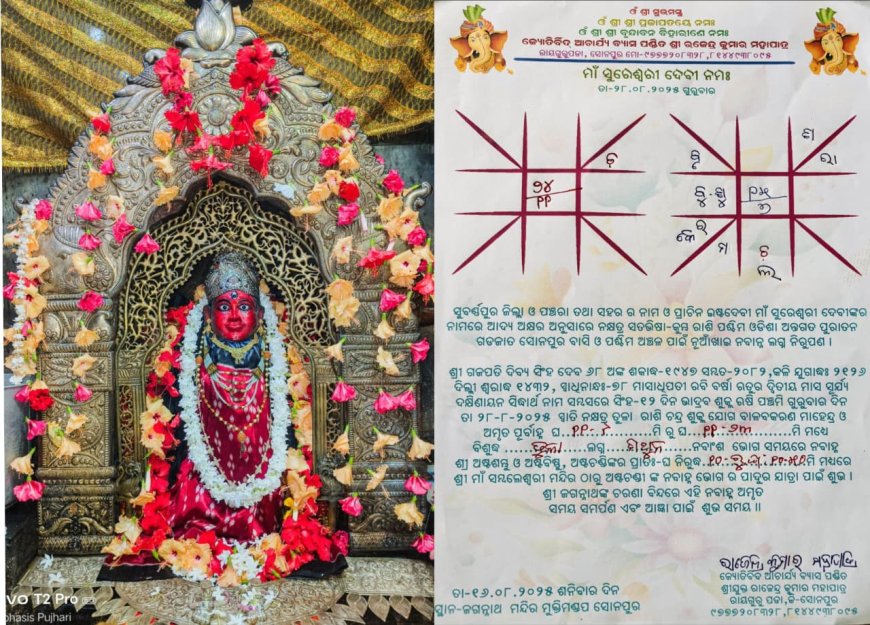 ଓଁ ଶ୍ରୀ ଗୁରବେ ନମଃ
ଓଁ ଶ୍ରୀ ଶ୍ରୀ ପ୍ରଜାପତୟେ ନମଃ
ଓଁ ଶ୍ରୀ ଶ୍ରୀ ବୃନ୍ଦାବନ ବିହାରୀଣେ ନମଃ
ଜ୍ୟୋତିର୍ବିଦ ଆଚାର୍ଯ୍ୟ ବ୍ୟାସ ପଣ୍ଡିତ ଶ୍ରୀ ରଜେନ୍ଦ୍ର କୁମାର ମହାପାତ୍ର
ରାୟଗୁରୁପଡା, ସୋନପୁର ମୋ-୯୭୭୭୨୦୮୩୨,୮୧୪୪୯୩୮୦୯୫
ମାଁ ସୁରେଶ୍ୱରୀ ଦେବୀ ନମଃ
ତା-୨୮.୦୮.୨୦୨୫ ଗୁରୁବାର
ସୁବର୍ଣ୍ଣପୁର ଜିଲ୍ଲା ଓ ପଞ୍ଚରା ତଥା ସହର ର ନାମ ଓ ପ୍ରାଚିନ ଇଷ୍ଟଦେବୀ ମାଁ ସୁରେଶ୍ୱରୀ ଦେବୀଙ୍କର
ନାମରେ ଆଦ୍ୟ ଅକ୍ଷର ଅନୁସାରେ ନକ୍ଷତ୍ର ସତଭିଷା-କୁମ୍ଭ ରାଶି ପଶ୍ଚିମ ଓଡିଶା ଅନ୍ତଗତ ପୁରାତନ
ଗଡଜାତ ସୋନପୁର ବାସି ଓ ପଶ୍ଚିମ ଅଞ୍ଚଳ ପାଇଁ ନୂଆଁଖାଇ ନବାନ୍ନ ଲଗ୍ନ ନିରୁପଣ ।
ଶ୍ରୀ ଗଜପତି ଦିବ୍ୟ ସିଂହ ଦେବ ୬୮ ଅଙ୍କ ଶକାବ୍ଦ-୧୯୪୭ ସମ୍ବତ-୨୦୮୨,କଳି ଯୁଗାବ୍ଦଃ ୫୧୨୬
ଦିଲ୍ଲୀ ଶ୍ୱରାବ୍ଦ ୧୪୩୨, ସ୍ୱାଧିନାବ୍ଦଃ-୭୮ ମାସାଧିପତୀ ରବି ବର୍ଷା ଋତୁର ଦ୍ୱିତୀୟ ମାସ ସୂର୍ଯ୍ୟ
ଦକ୍ଷିଣାୟନ ସିଦ୍ଧାର୍ଥ ନାମ ସମ୍ବସରେ ସିଂହ-୧୨ ଦିନ ଭାଦ୍ରବ ଶୁକ୍ଳ ଋଷି ପଞ୍ଚମି ଗୁରୁବାର ଦିନ
ତା ୨୮-୮-୨୦୨୫ ସ୍ୱାତି ନକ୍ଷତ୍ର ତୂଳା ରାଶି ଚନ୍ଦ୍ର ଶୁକ୍ଳ ଯୋଗ ବାଳବକରଣ ମାହେନ୍ଦ୍ର ଓ
ଅମୃତ ପୂର୍ବାହ୍ନ ଘ ମି ରୁ ଘ ମି ମଧ୍ୟେ
ବିଶୁଦ୍ଧ ତୁଳା ଲଗ୍ନ ନବାଂଶ ଭୋଗ ସମୟରେ ନବାନ୍ନ
ଶ୍ରୀ ଅଷ୍ଟଶମ୍ଭୁ ଓ ଅଷ୍ଟବିଷ୍ଣୁ, ଅଷ୍ଟଚଣ୍ଡିଙ୍କର ପ୍ରାତଃ-ଘ ମି ମଧ୍ୟରେ
ଶ୍ରୀ ମାଁ ସମଲେଶ୍ୱରୀ ମନ୍ଦିର ଠାରୁ ଅଷ୍ଟଚଣ୍ଡୀ ଙ୍କ ନବାନ୍ନ ଭୋଗ ର ପାତ୍ରର ଯାତ୍ରା ପାଇଁ ଶୁଭ ।
ଶ୍ରୀ ଜଗନ୍ନାଥଙ୍କ ଚରଣା ବିନ୍ଦରେ ଏହି ନବାନ୍ନ ଅମୃତ
ସମୟ ସମର୍ପଣ ଏବଂ ଆଜ୍ଞା ପାଇଁ ଶୁଭ ସମୟ ॥
ରାଜେନ୍ଦ୍ର କୁମାର ମହାପାତ୍ର
ଜ୍ୟୋତିର୍ବିଦ ଆଚାର୍ଯ୍ୟ ବ୍ୟାସ ପଣ୍ଡିତ
ଶ୍ରୀଯୁକ୍ତ ରାଜେନ୍ଦ୍ର କୁମାର ମହାପାତ୍ର
ରାୟଗୁରୁ ପଡା, ଜି-ସୋନପୁର
୯୭୭୭୨୦୮୩୨,୮୧୪୪୯୩୮୦୯୫
ତା-୧୬.୦୮.୨୦୨୫ ଶନିବାର ଦିନ
ସ୍ଥାନ-ଜଗନ୍ନାଥ ମନ୍ଦିର ମୁକ୍ତିମଣ୍ଡପ ସୋନପୁର
VO T2 Pro
phasis Pujhari